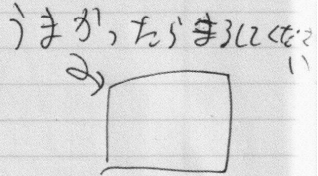 うまかったらまるしてください